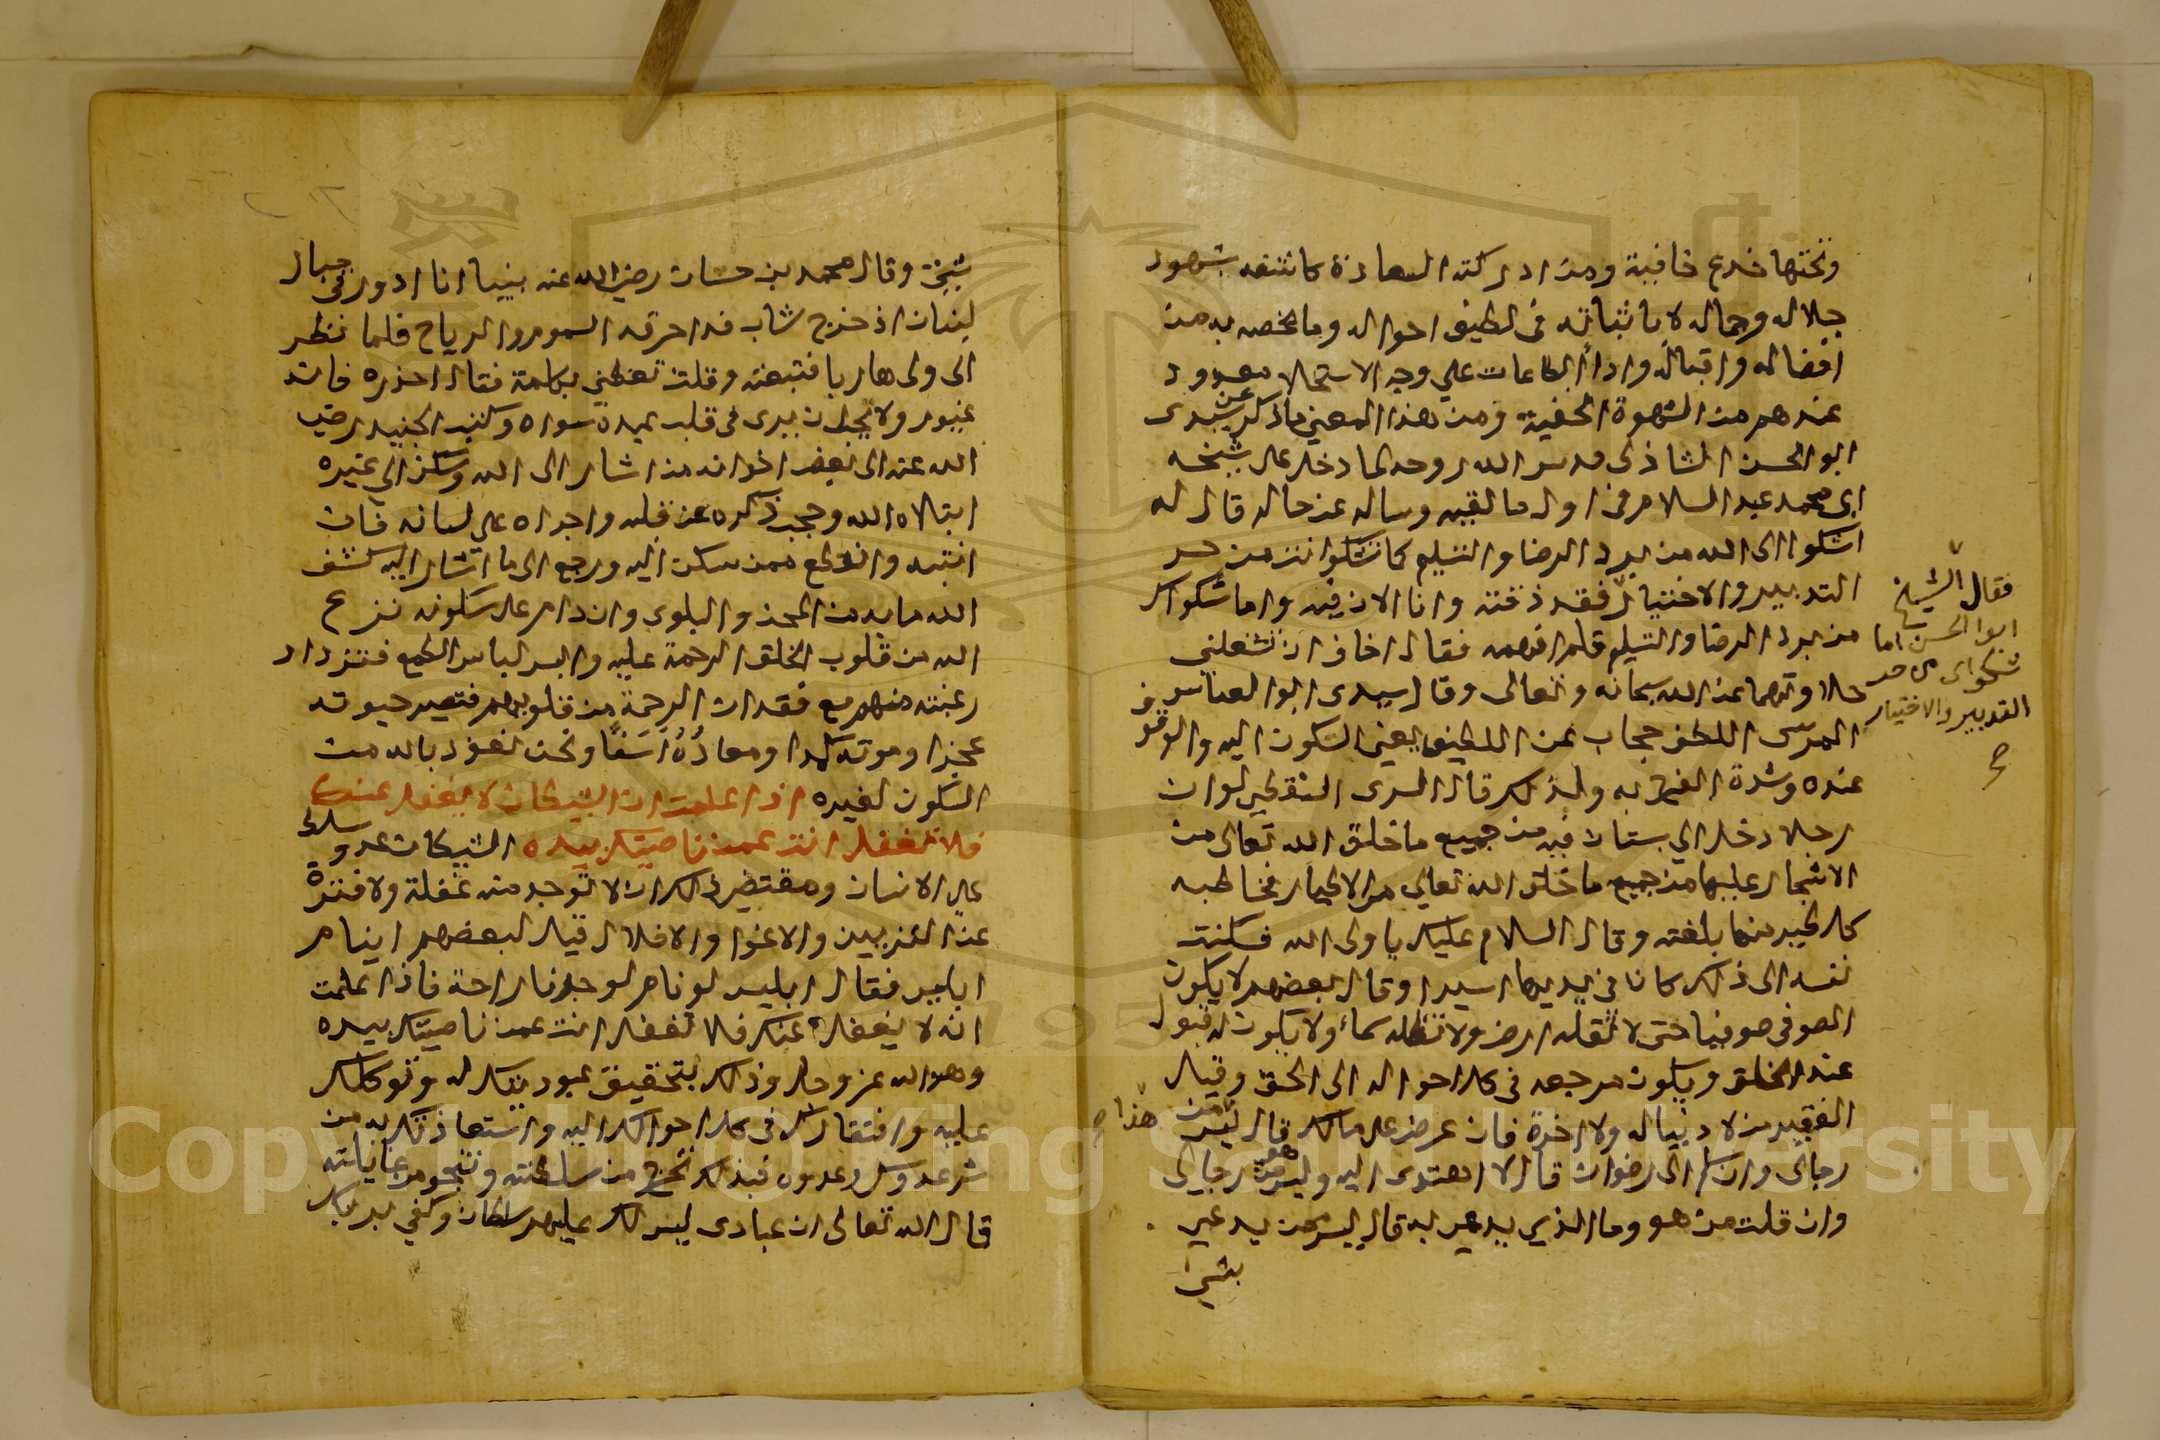 وتحتها خدع خافية ومن ادركته السعادة كاشفه بشهود
جلاله وجماله لا باثباته في لطيف احواله وما يخصه به من
افضاله واقباله واداء الطاعات علي وجه الاستحلا معدود
عندهم من الشهوة الخفية ومن هذا المعني ما ذكر عن سيدى
ابو الحسن الشاذلى قدس الله روحه لما دخل على شيخه
ابى محمد عبد السلام في اول ما لقيه وساله عن حاله قال له
اشكوا الى الله من برد الرضا والتسليم كما تشكوا انت من حر
التدبير والاختيار فقد ذقته وانا الان فيه واما شكواك
من برد الرضا والتسليم فلم افهمه فقال اخاف ان تشغلني
حلاوتهما عن الله سبحانه وتعالى وقال سيدى ابو العباس
المرسى اللطف حجاب عن اللطيف يعني السكون اليه والوقوف
عنده وشدة الفرح به ولذلك قال السرى السقطي لو ان
رجلا دخل الي بستان فيه من جميع ما خلق الله تعالى من
الاشجار عليها من جميع ما خلق الله تعالي من الاطيار فخاطبه
كل طير منها بلغته وقال السلام عليك يا ولى الله فسكنت
نفسه الى ذلك كان في يديها اسيرا وقال بعضهم لا يكون
الصوفى صوفيا حتى لا تقله ارض ولا تظله سماء ولا يكون له قبول
عند الخلق ويكون مرجعه في كل احواله الى الحق وقيل
الفقير من لا دنيا له ولا اخرة فان عرض على مالك قال ليس من
رجالى وان الى رضوان قال لا اهتدى اليه وليس هو من رجالى
وان قلت من هو وما الذي يدعى به قال ليس ممن يدعى
بشي
فقال الشيخ
ابوا الحسن اما
شكواى من حر
التدبير والاختيار
صح
هذا
شيخ وقال محمد بن حسان رضي الله عنه بينما انا ادور في جبال
لبنان اذ خرج شاب قد احرقه السموم والرياح فلما نظر
الى ولى هاربا فتبعته وقلت تعظني بكلمة فقال احذره فانه
غيور ولا يحب ان يرى في قلب عبده سواه وكتب الجنيد رضي
الله عنه الى بعض اخوانه من اشار الى الله وسكن الي غيره
ابتلاه الله وحجب ذكره عن قلبه واجراه على لسانه فان
انتبه وانقطع ممن سكن اليه ورجع الى ما اشار اليه كشف
الله ما به من المحن والبلوى وان دام على سكونه نزع
الله من قلوب الخلق الرحمة عليه والبس لباس الطمع فتزداد
رغبته منهم مع فقدان الرحمة من قلوبهم فتصير حيوته
عجزا وموته كمدا ومعاده اسفا ونحن نعوذ بالله من
السكون لغيره اذا علمت ان الشيطان لا يغفل عنك
فلا تغفل انت عمن ناصيتك بيده الشيطان عدو مسلط
على الانسان ومقتضى ذلك ان لا توجد منه غفلة ولا فترة
عن التزيين والاغوا والاضلال قيل لبعضهم اينام
ابليس فقال ابليس لو نام لوجدنا راحة فاذا علمت
انه لا يغفل عنك فلا تغفل انت عمن ناصيتك بيده
وهو الله عز وجل وذلك بتحقيق عبوديتك له وتوكلك
عليه وافتقارك في كل احوالك اليه واستعاذتك به من
شر عدوك وعدوه فبذلك تخرج من سلطنته وتنجو من غاياته
قال الله تعالى ان عبادى ليس لك عليهم سلطان وكفي بربك